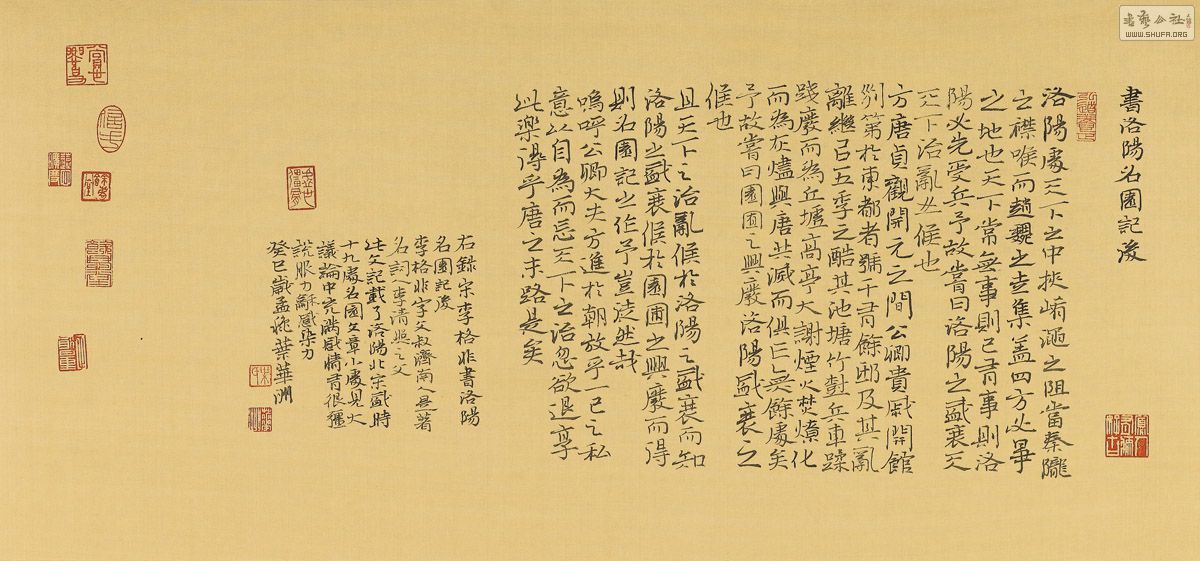 書洛陽名園記後
洛陽處天下之中挾崤澠之阻當秦隴
之襟喉而趙魏之走集蓋四方必爭
之地也天下常無事則已有事則洛
陽必先受兵予故嘗曰洛陽之盛衰天
天下治亂之候也
方唐貞觀開元之間公卿貴戚開館
列第於東都者號千有餘邸及其亂
離繼已五季之酷其池塘竹樹兵車蹂
踐廢而為丘墟高亭大謝煙火焚燎化
而為灰燼與唐共滅而俱亡無餘處矣
予故嘗曰園囿之興廢洛陽盛衰之
候也
且天下之治亂候於洛陽之盛衰而知
洛陽之盛衰候於園圃之興廢而得
則名園記之作予豈徒然哉
嗚呼公卿大夫方進於朝放乎一己之私
意以自為而忘天下之治忽欲退享
此樂得乎唐之末路是矣
右錄宋李格非書洛陽
名園記後
李格非字文叔濟南人是著
名詞人李清照之父
此文記載了洛陽北宋盛時
十九處名園文章小處見大
議論中充滿感情有很強
說服力和感染力
癸巳歲孟秋葉華洲
書藝公社
WWW.SHUFA.ORG